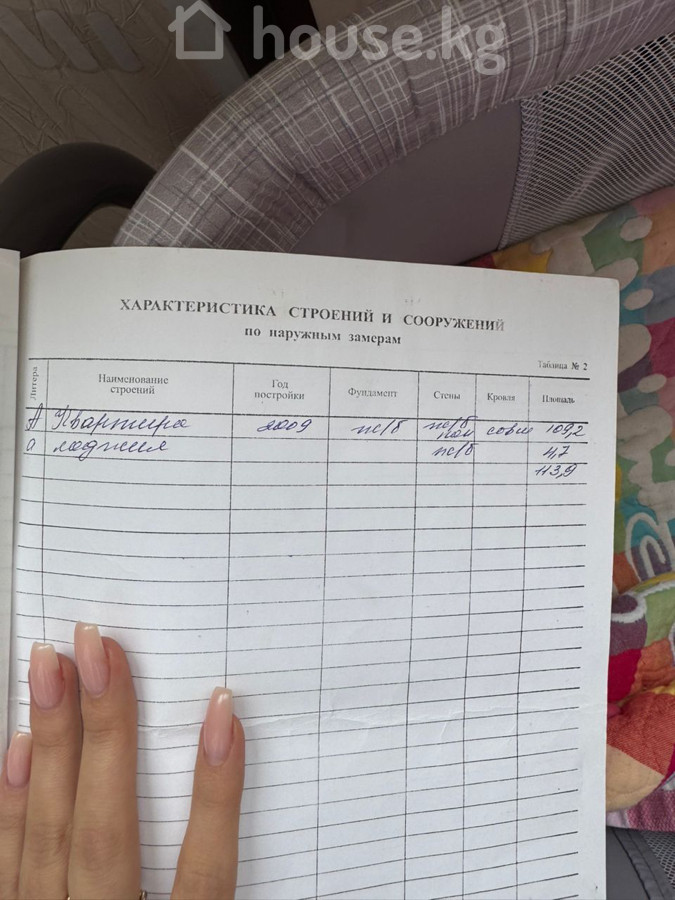 house.kg
ХАРАКТЕРИСТИКА СТРОЕНИЙ И СООРУЖЕНИЙ
по наружным замерам
Таблица № 2
Литера Наименование строений Год постройки Фундамент Стены Кровля Площадь
А Квартира 2009 ж/б ж/б совм 109,2
а лоджия ж/б 4,7
113,9